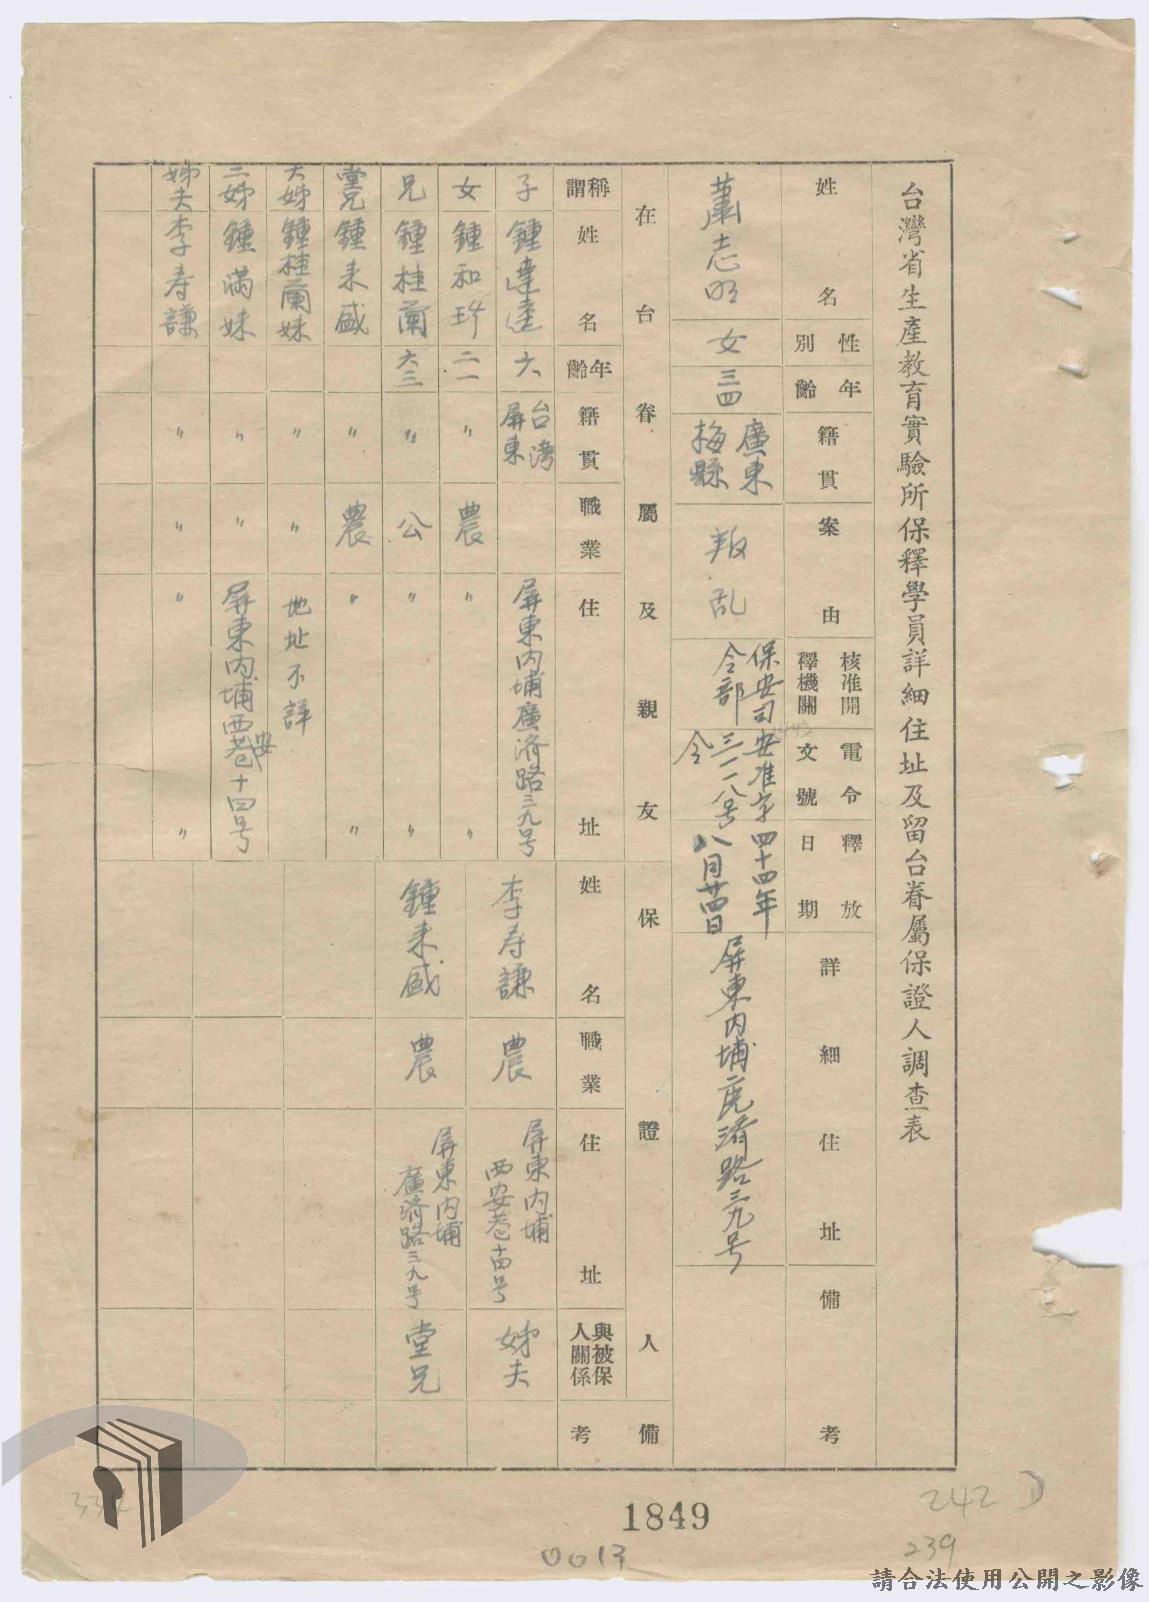 台灣省生產教育實驗所保釋學員詳細住址及留台眷屬保證人調查表
姓名
性別
年齡
籍貫
案由
核准開釋機關
電令文號
釋放日期
詳細住址
備考
蕭志明
女
三四
廣東
梅縣
叛乱
保安司
令部
安准字
三一一八号
令
四十四年
八月廿四日
屏東内埔広済路三九号
在台眷屬及親友
保證人
備考
稱謂
姓名
年齡
籍貫
職業
住址
姓名
職業
住址
與被保人關係
子
鍾達達
六
台湾
屏東
屏東内埔廣済路三九号
女
鍾和玶
二一
〃
農
〃
〃
兄
鍾桂蘭
六三
〃
公
〃
〃
堂兄
鍾来盛
〃
農
〃
〃
大姊
鍾桂蘭妹
〃
〃
地址不詳
二姊
鍾滿妹
〃
〃
屏東内埔西安巷十四号
姊夫
李寿謙
〃
〃
〃
〃
李寿謙
農
屏東内埔
西安巷十四号
姊夫
鍾来盛
農
屏東内埔
廣済路三九号
堂兄
1849
0013
242
239
334
請合法使用公開之影像